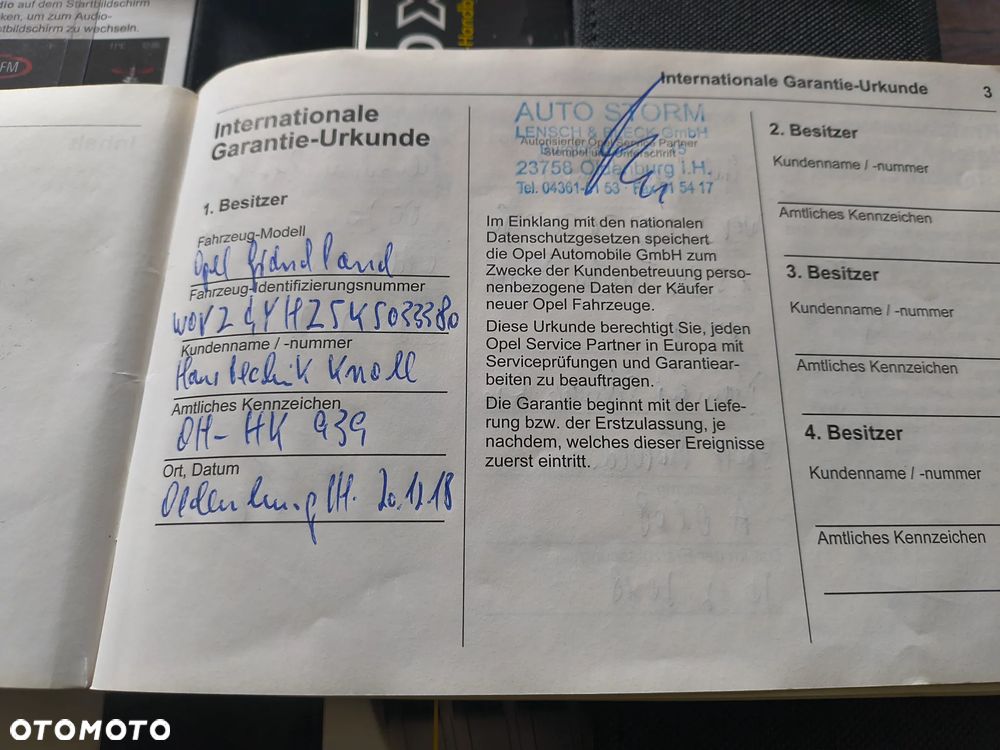 dio auf dem Startbildschirm
ken, um zum Audio-
tbildschirm zu wechseln.
FM
OX
-Handb
Internationale Garantie-Urkunde 3
Internationale
Garantie-Urkunde
1. Besitzer
Fahrzeug-Modell
Opel Grandland
Fahrzeug-Identifizierungsnummer
Kundenname / -nummer
Haustechnik Knoll
Amtliches Kennzeichen
OH-HK 939
Ort, Datum
Oldenburg i.H. 20.12.18
AUTO STORM
LENSCH & BLECK GmbH
Autorisierter Opel Service Partner
Stempel und Unterschrift
23758 Oldenburg i.H.
Im Einklang mit den nationalen
Datenschutzgesetzen speichert
die Opel Automobile GmbH zum
Zwecke der Kundenbetreuung perso-
nenbezogene Daten der Käufer
neuer Opel Fahrzeuge.
Diese Urkunde berechtigt Sie, jeden
Opel Service Partner in Europa mit
Serviceprüfungen und Garantiear-
beiten zu beauftragen.
Die Garantie beginnt mit der Liefe-
rung bzw. der Erstzulassung, je
nachdem, welches dieser Ereignisse
zuerst eintritt.
2. Besitzer
Kundenname / -nummer
Amtliches Kennzeichen
3. Besitzer
Kundenname / -nummer
Amtliches Kennzeichen
4. Besitzer
Kundenname / -nummer
Amtliches Kennzeichen
OTOMOTO